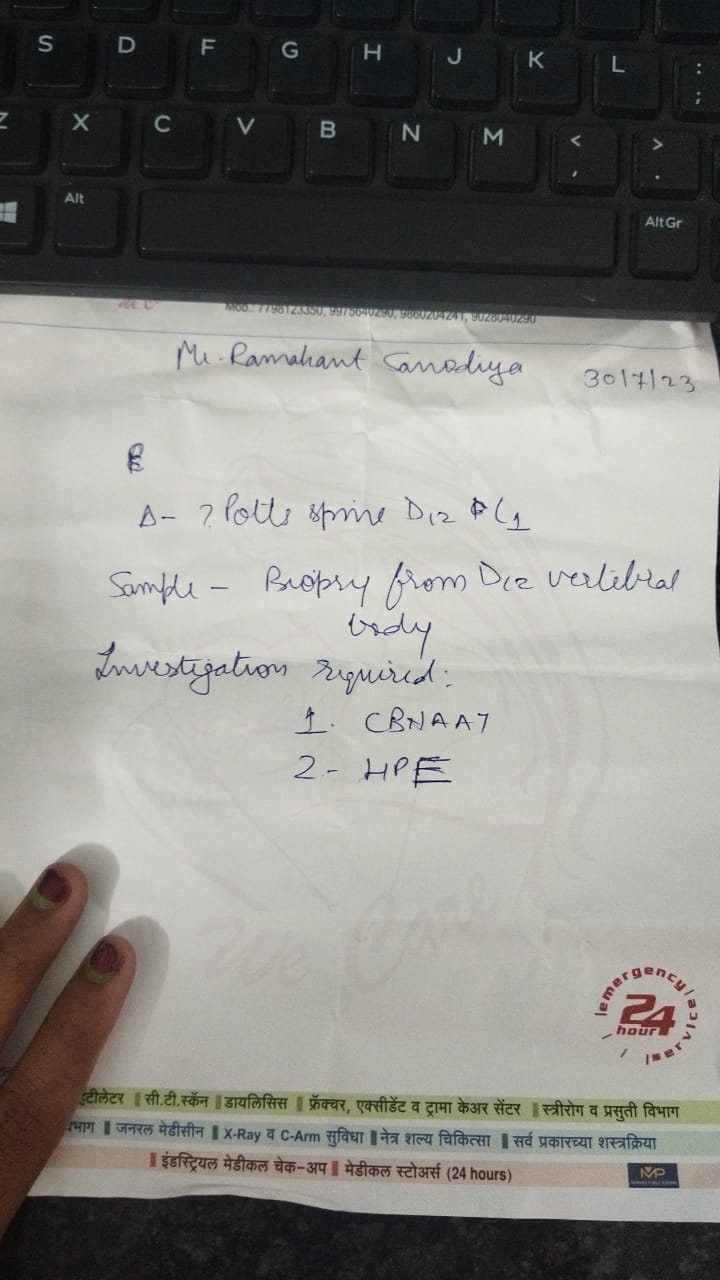 S D F G H J K L : ;
Z X C V B N M < , > .
Alt Alt Gr
Mob.: 7798123350, 9975640290, 9860204241, 9028040290
Mr. Ramakant Sanodiya 30/7/23
Δ- ? Potts spine D12 L1
Sample - Biopsy from D12 vertebral
body
Investigation required:
1. CBNAAT
2- HPE
We Care
emergency service
24
hour
सी.टी.स्कॅन || डायलिसिस || फ्रॅक्चर, एक्सीडेंट व ट्रामा केअर सेंटर || स्त्रीरोग व प्रसुती विभाग
जनरल मेडीसीन || X-Ray व C-Arm सुविधा || नेत्र शल्य चिकित्सा || सर्व प्रकारच्या शस्त्रक्रिया
|| इंडस्ट्रियल मेडीकल चेक-अप || मेडीकल स्टोअर्स (24 hours)
MP